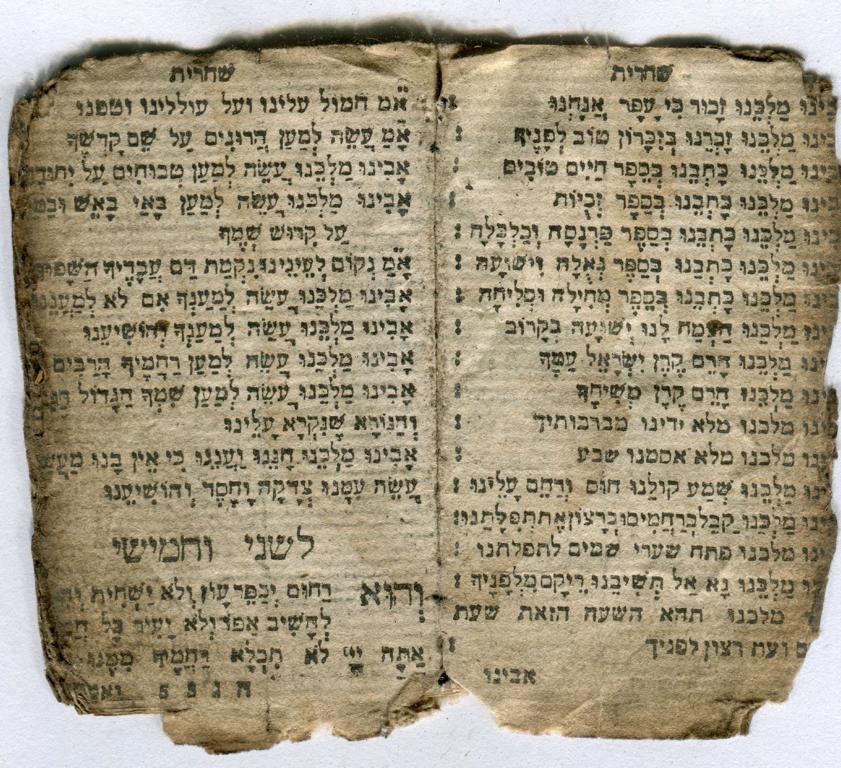 שחרית
מַלְכֵּנוּ זָכוּר כִּי עָפָר אֲנָחְנוּ
מַלְכֵּנוּ זָכְרֵנוּ בְּזִכָּרוֹן טוֹב לְפָנֶיךָ :
מַלְכֵּנוּ כָּתְבֵנוּ בְּסֵפֶר חַיִּים טוֹבִים
מַלְכֵּנוּ כָּתְבֵנוּ בְּסֵפֶר זְכֻיּוֹת :
מַלְכֵּנוּ כָּתְבֵנוּ בְּסֵפֶר פַּרְנָסָה וְכַלְכָּלָה :
מַלְכֵּנוּ כָּתְבֵנוּ בְּסֵפֶר גְּאֻלָּה וִישׁוּעָה :
מַלְכֵּנוּ כָּתְבֵנוּ בְּסֵפֶר מְחִילָה וּסְלִיחָה :
מַלְכֵּנוּ הַצְמַח לָנוּ יְשׁוּעָה בְּקָרוֹב :
מַלְכֵּנוּ הָרֵם קֶרֶן יִשְׂרָאֵל עַמֶּךָ
מַלְכֵּנוּ הָרֵם קֶרֶן מְשִׁיחֶךָ :
מלכנו מלא ידינו מברכותיך :
מלכנו מלא אסמנו שבע :
מַלְכֵּנוּ שְׁמַע קוֹלֵנוּ חוּס וְרַחֵם עָלֵינוּ :
מַלְכֵּנוּ קַבֵּל בְּרַחֲמִים וּבְרָצוֹן אֶת תְּפִלָּתֵנוּ :
מלכנו פתח שערי שמים לתפלתנו :
מַלְכֵּנוּ נָא אַל תְּשִׁיבֵנוּ רֵיקָם מִלְּפָנֶיךָ :
מלכנו תהא השעה הזאת שעת
ועת רצון לפניך :
אבינו
שחרית
אָ״מ חמול עלינו ועל עוללינו וטפנו
אָ״מ עֲשֵׂה לְמַעַן הֲרוּגִים עַל שֵׁם קָדְשֶׁךָ
אָבִינוּ מַלְכֵּנוּ עֲשֵׂה לְמַעַן טְבוּחִים עַל
אָבִינוּ מַלְכֵּנוּ עֲשֵׂה לְמַעַן בָּאֵי בָאֵשׁ
עַל קִדּוּשׁ שְׁמֶךָ
אָ״מ נְקוֹם לְעֵינֵינוּ נִקְמַת דַּם עֲבָדֶיךָ
אָבִינוּ מַלְכֵּנוּ עֲשֵׂה לְמַעַנְךָ אִם לֹא לְמַעֲנֵנוּ
אָבִינוּ מַלְכֵּנוּ עֲשֵׂה לְמַעַנְךָ וְהוֹשִׁיעֵנוּ
אָבִינוּ מַלְכֵּנוּ עֲשֵׂה לְמַעַן רַחֲמֶיךָ הָרַבִּים
אָבִינוּ מַלְכֵּנוּ עֲשֵׂה לְמַעַן שִׁמְךָ הַגָּדוֹל
וְהַנּוֹרָא שֶׁנִּקְרָא עָלֵינוּ
אָבִינוּ מַלְכֵּנוּ חָנֵּנוּ וַעֲנֵנוּ כִּי אֵין בָּנוּ
עֲשֵׂה עִמָּנוּ צְדָקָה וָחֶסֶד וְהוֹשִׁיעֵנוּ
לשני וחמישי
וְהוּא רַחוּם יְכַפֵּר עָוֹן וְלֹא יַשְׁחִית
לְהָשִׁיב אַפּוֹ וְלֹא יָעִיר כָּל
אַתָּה יְיָ לֹא תִכְלָא רַחֲמֶיךָ מִמֶּנּוּ